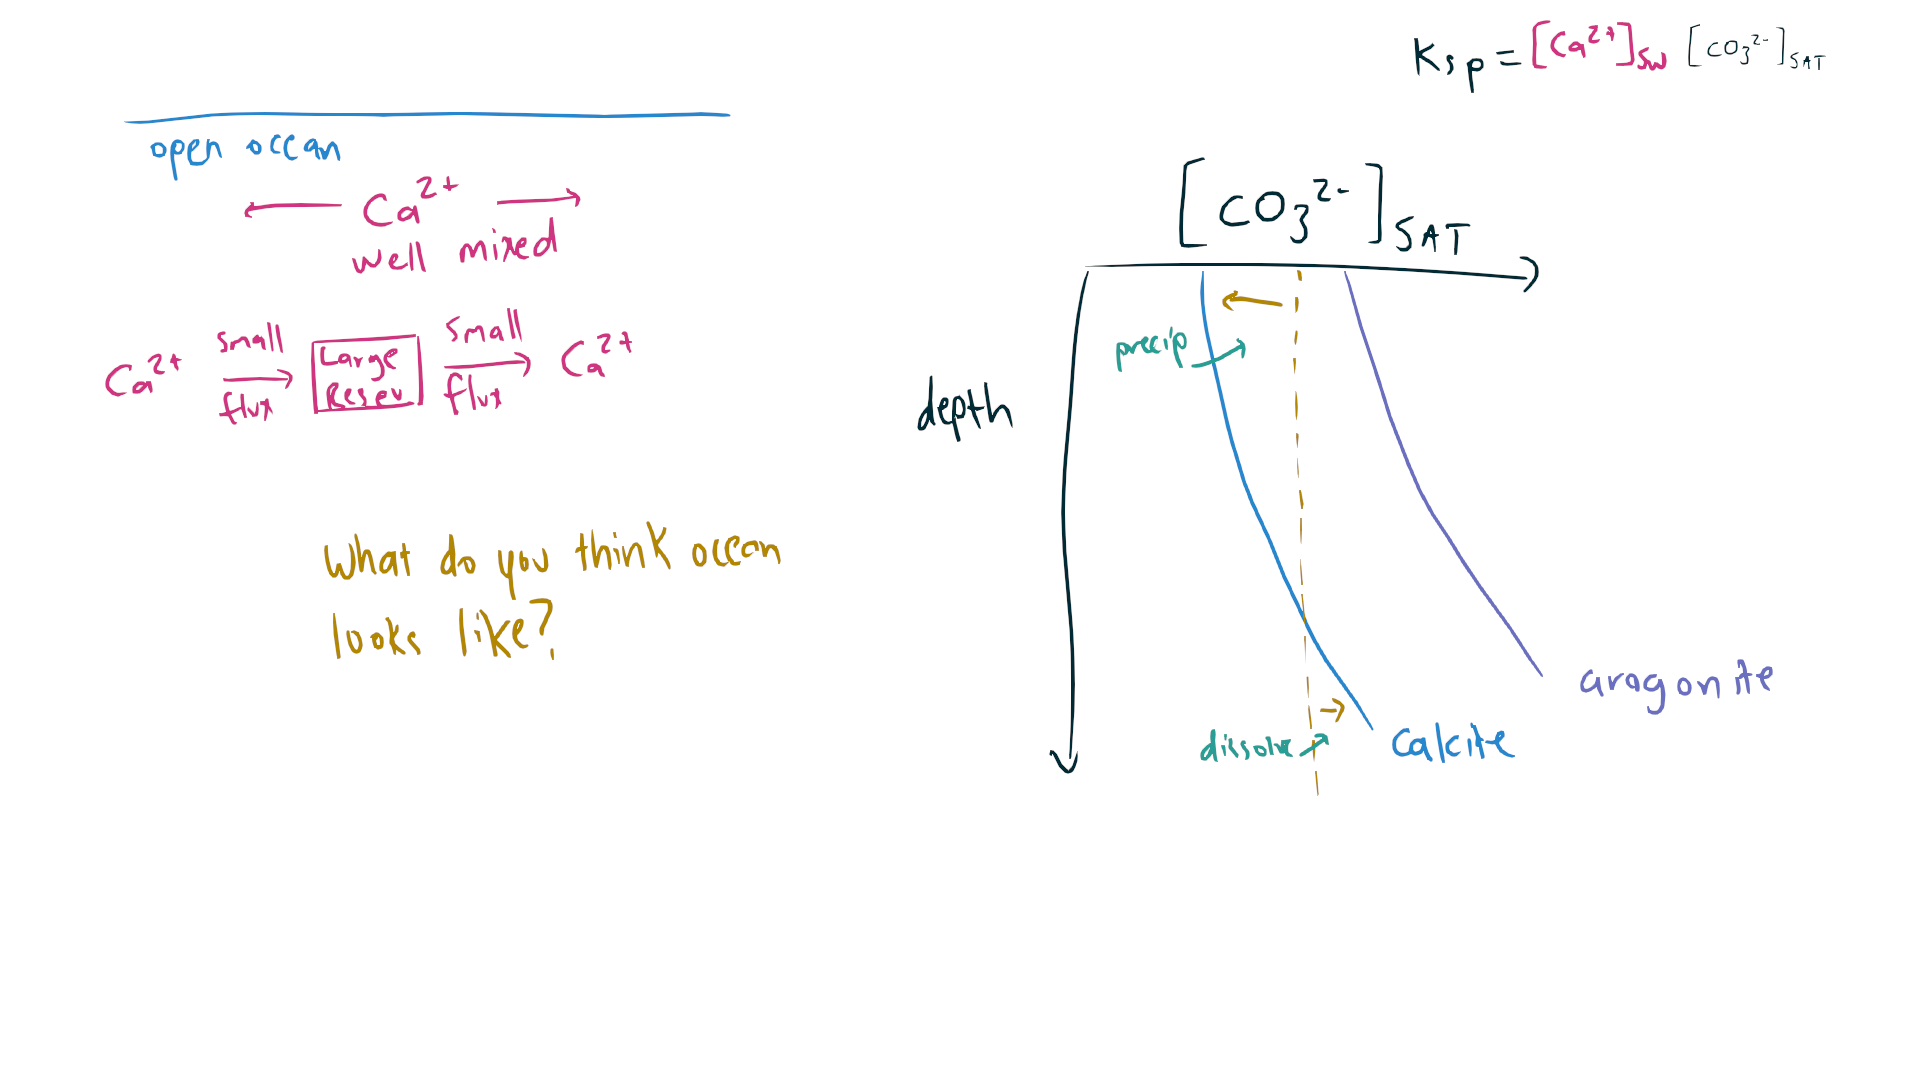 Ksp = [Ca²⁺]SW [CO₃²⁻]SAT
open ocean
Ca²⁺
well mixed
Ca²⁺ small flux Large Reser small flux Ca²⁺
What do you think ocean
looks like?
[CO₃²⁻]SAT
precip
depth
aragonite
dissolve
Calcite